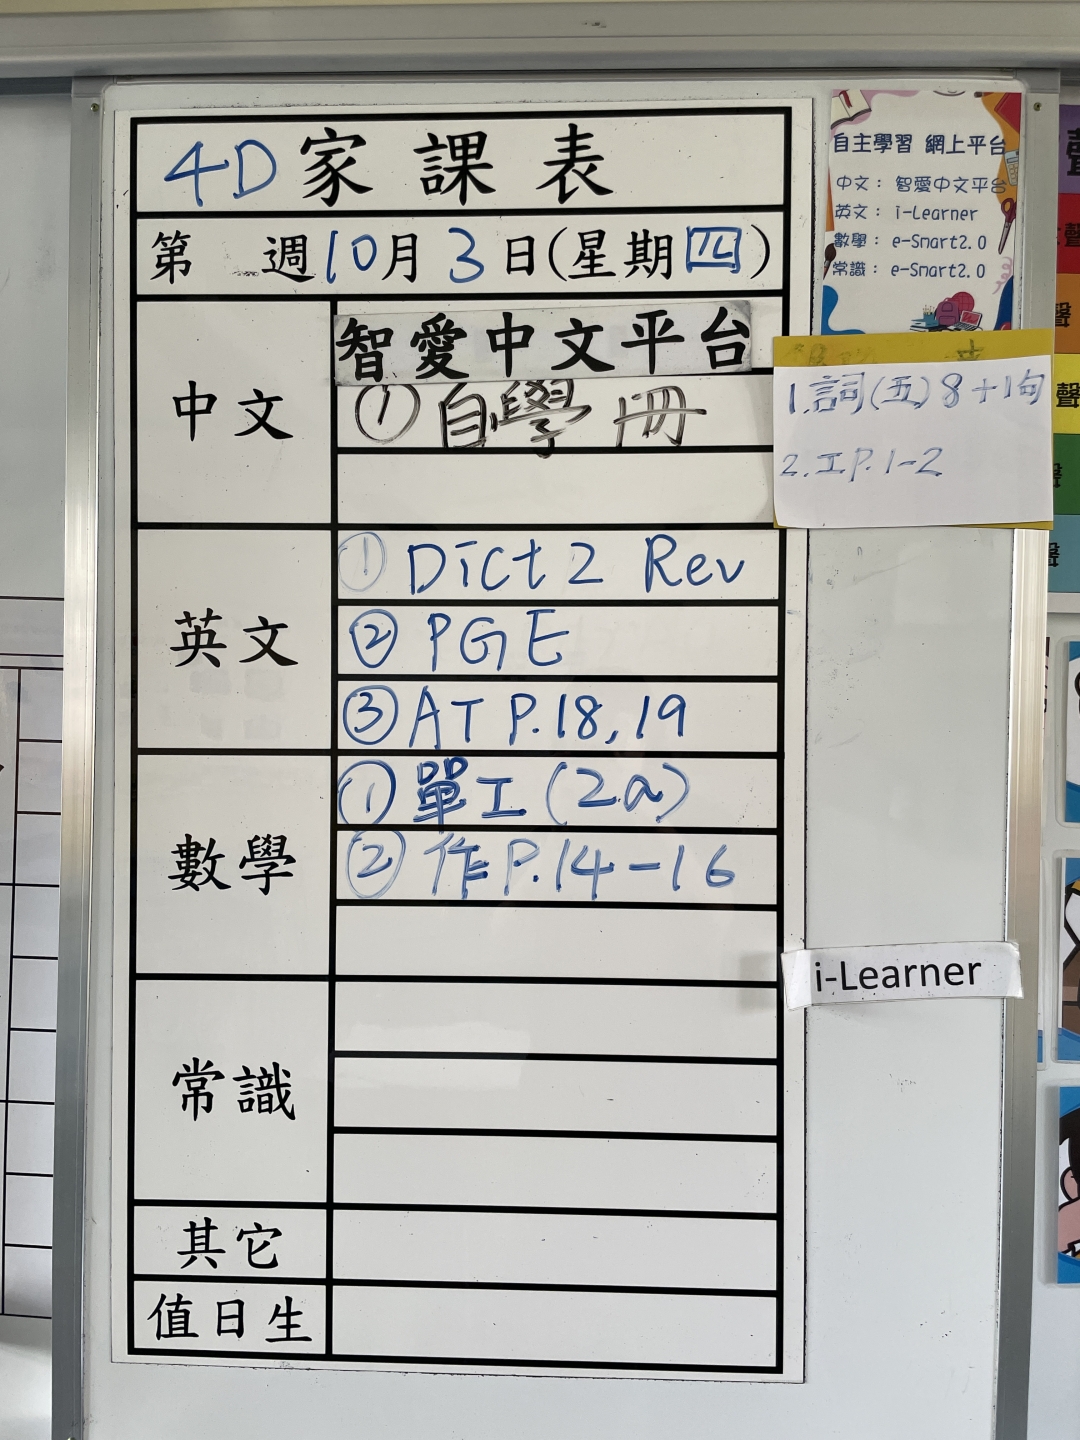 4D 家課表
第 週 10月3日(星期四)
中文
智愛中文平台
① 自學冊
英文
① Dict 2 Rev
② PGE
③ AT P.18,19
數學
① 單工(2a)
② 作P.14-16
常識
其它
值日生
自主學習 網上平台
中文：智愛中文平台
英文：i-Learner
數學：e-Smart2.0
常識：e-Smart2.0
1.詞(五)8+1句
2.工P.1-2
i-Learner
聲
聲
聲
聲